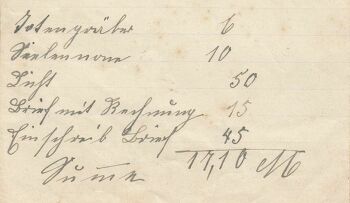 Totengräber 6
Seelennone 10
Licht 50
Brief mit Rechnung 15
Einschreib Brief 45
Summe 17,10 M